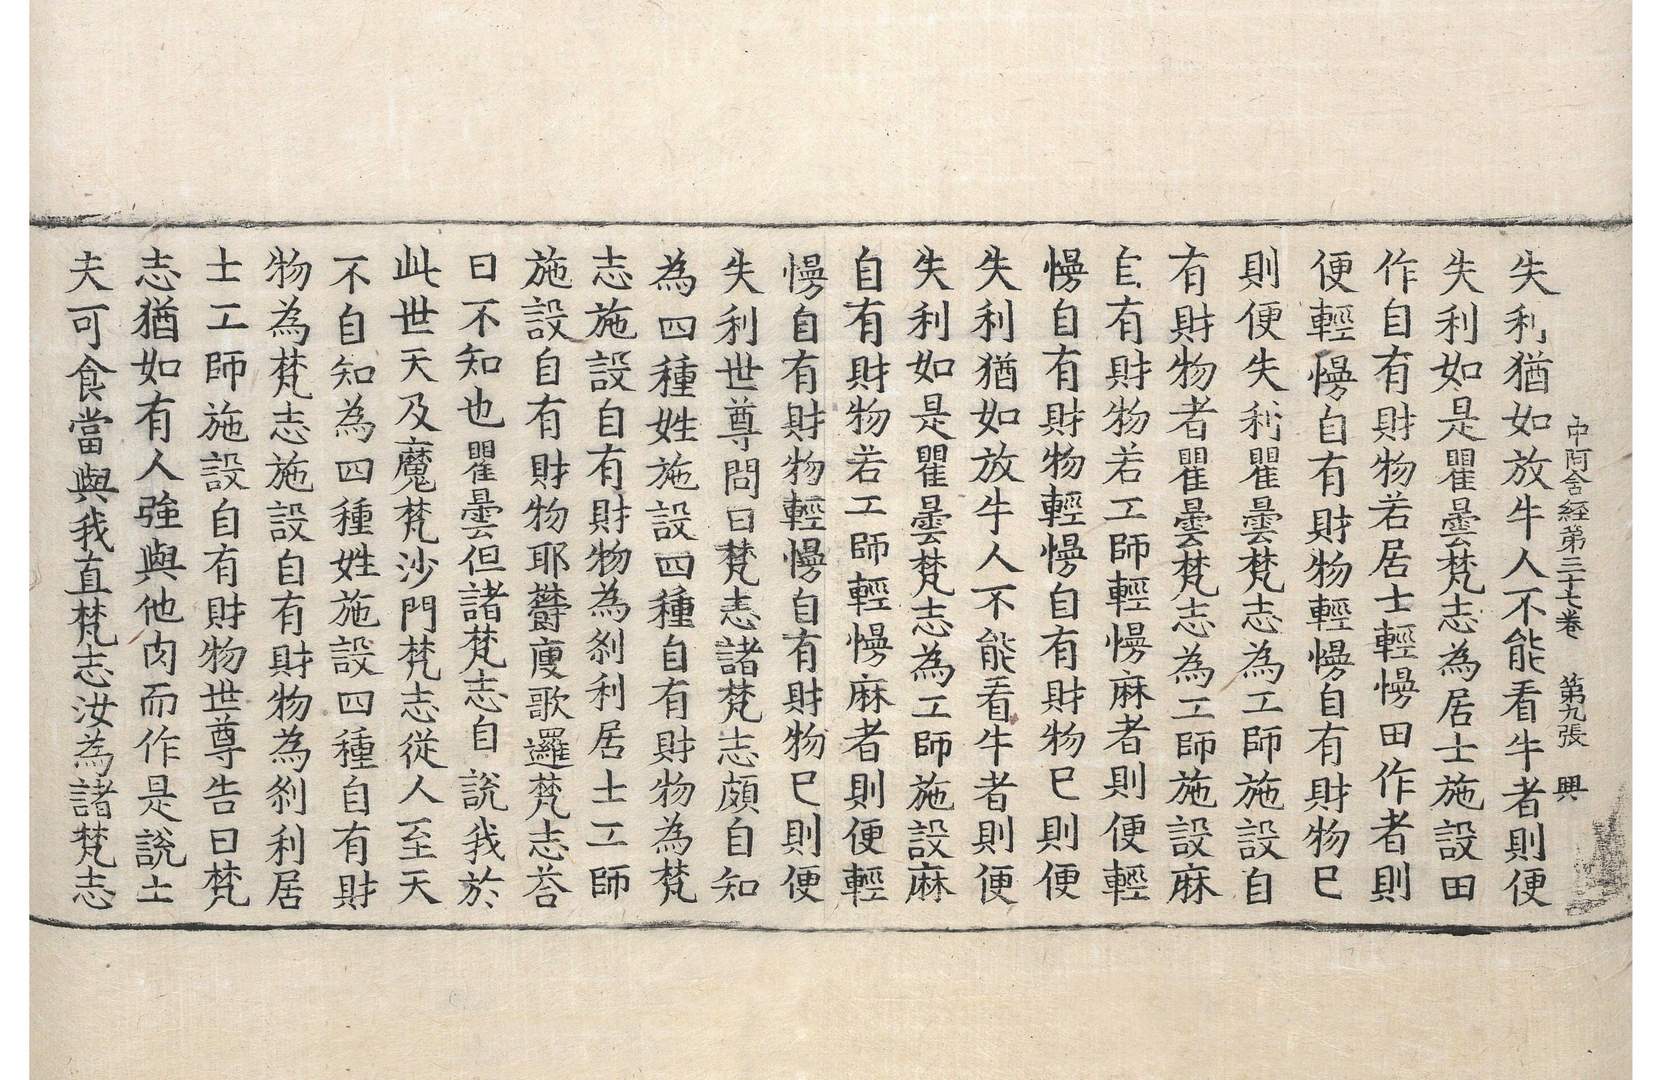 中阿含經第三十七卷 第九張 興
失利猶如放牛人不能看牛者則便
失利如是瞿曇梵志為居士施設田
作自有財物若居士輕慢田作者則
便輕慢自有財物輕慢自有財物已
則便失利瞿曇梵志為工師施設自
有財物者瞿曇梵志為工師施設麻
自有財物若工師輕慢麻者則便輕
慢自有財物輕慢自有財物已則便
失利猶如放牛人不能看牛者則便
失利如是瞿曇梵志為工師施設麻
自有財物若工師輕慢麻者則便輕
慢自有財物輕慢自有財物已則便
失利世尊問曰梵志諸梵志頗自知
為四種姓施設四種自有財物為梵
志施設自有財物為刹利居士工師
施設自有財物耶欝廋歌邏梵志荅
曰不知也瞿曇但諸梵志自說我於
此世天及魔梵沙門梵志從人至天
不自知為四種姓施設四種自有財
物為梵志施設自有財物為刹利居
士工師施設自有財物世尊告曰梵
志猶如有人強與他肉而作是說士
夫可食當與我直梵志汝為諸梵志